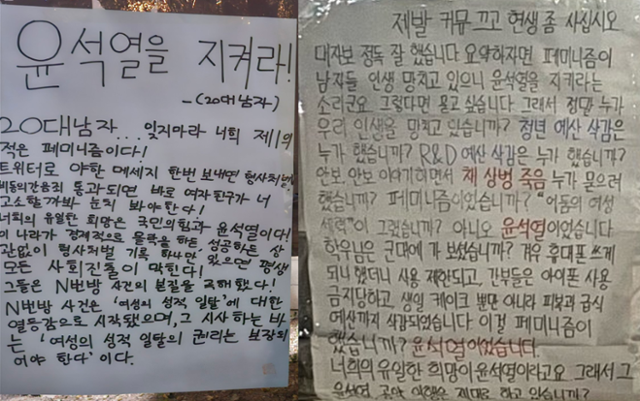 윤석열을 지켜라!
-(20대남자)
20대남자... 잊지마라 너희 제1의
적은 페미니즘이다!
트위터로 야한 메세지 한번 보내면 형사처벌
비동의간음죄 통과되면 바로 여자친구가 너
고소할까봐 눈치 봐야한다!
너희의 유일한 희망은 국민의힘과 윤석열이다!
이 나라가 경제적으로 몰락을 하든, 성공하든 상
관없이 형사처벌 기록 하나만 있으면 평생
모든 사회진출이 막힌다!
그들은 N번방 사건의 본질을 곡해했다!
N번방 사건은 '여성의 성적 일탈'에 대한
열등감으로 시작됐으며, 그 시사하는 바
는 '여성의 성적 일탈의 권리는 보장되
어야 한다'이다.
제발 커뮤 끄고 현생 좀 사십시오
대자보 정독 잘 했습니다 요약하자면 페미니즘이
남자들 인생 망치고 있으니 윤석열을 지키라는
소리군요 그렇다면 묻고 싶습니다 그래서 정말 누가
우리 인생을 망치고 있습니까? 청년 예산 삭감은
누가 했습니까? R&D 예산 삭감은 누가 했습니까?
안보 안보 이야기하면서 채 상병 죽음 누가 묻으려
했습니까? 페미니즘이었습니까? "어둠의 여성
세력"이 그랬습니까? 아니오 윤석열이었습니다
학우님은 군대에 가 보셨습니까? 겨우 휴대폰 쓰게
되나 했더니 사용 제한되고, 간부들은 아이폰 사용
금지당하고, 생일 케이크 뿐만 아니라 피복과 급식
예산까지 삭감되었습니다 이걸 페미니즘이
했습니까? 윤석열이었습니다.
너희의 유일한 희망이 윤석열이라고요 그래서 그
윤석열 공약 이행은 제대로 하고 있습니까?